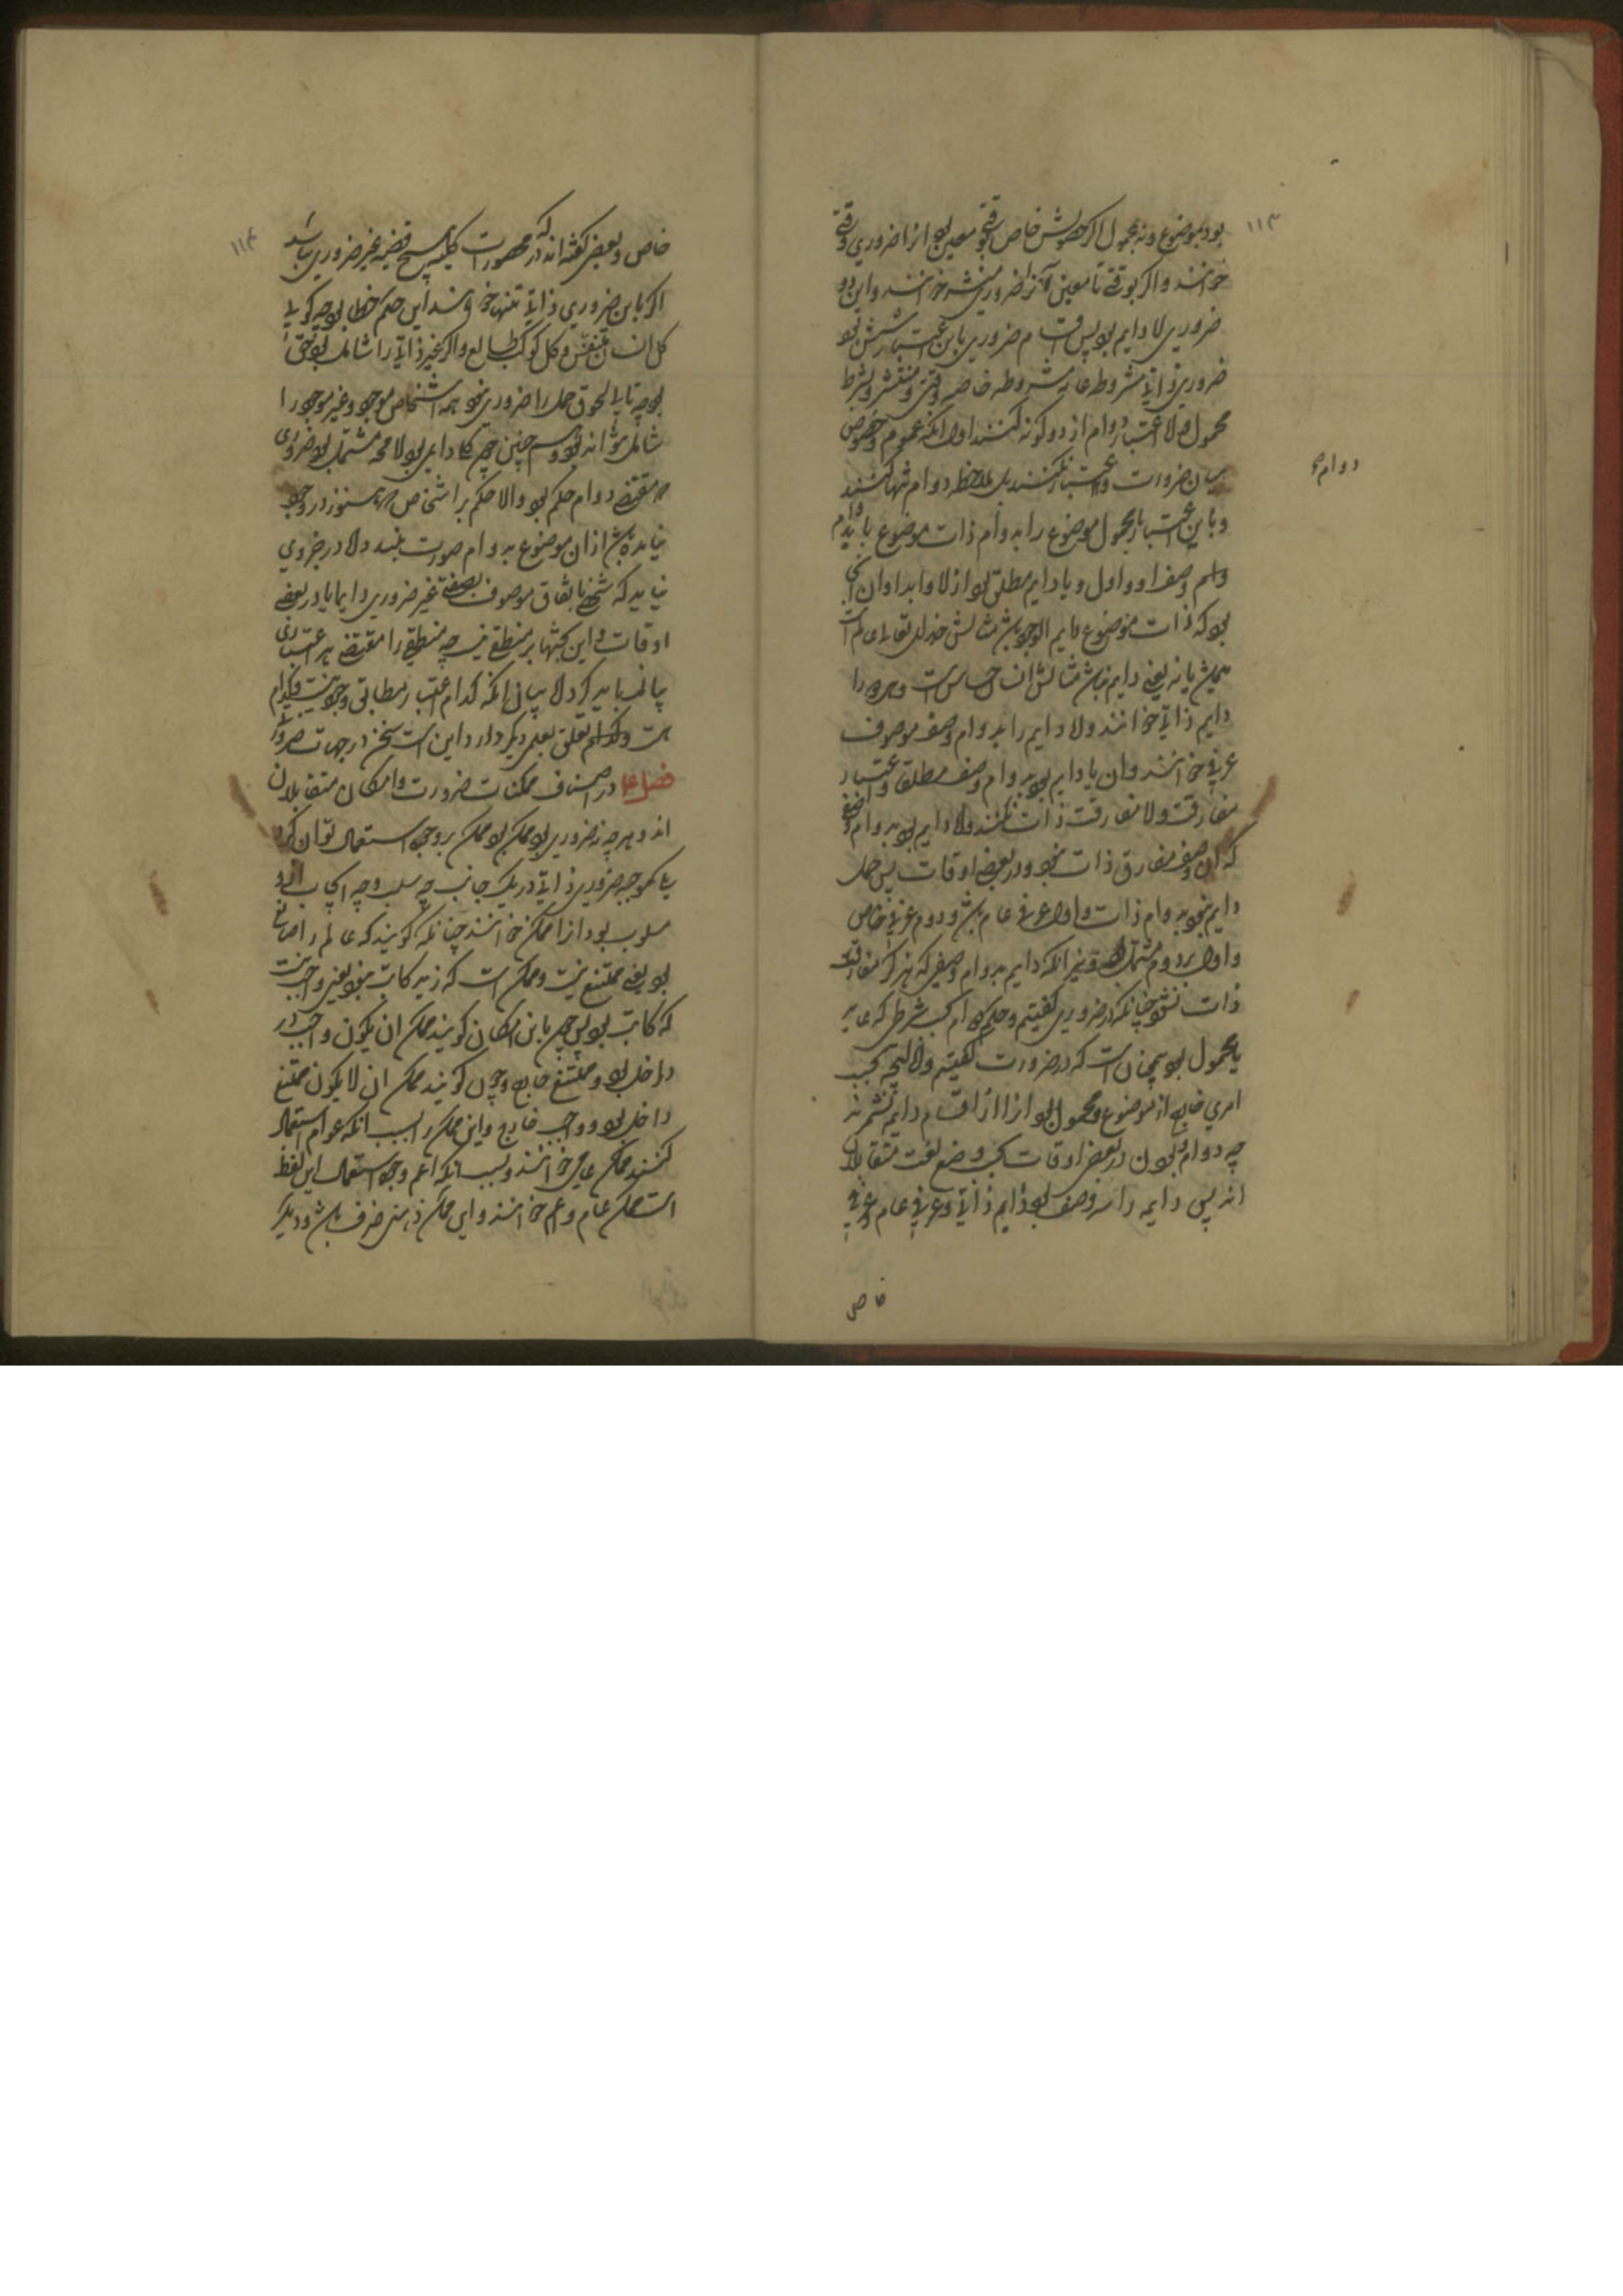 ۱۱۳
بود بموضوع ونه بمحمول اگر حصولش خاص بوقتی معین بود انرا ضروری وقتی
خوانند واگر بوقتی نامعین آنرا ضروری منتشر خوانند واین دو
ضروری لا دایم بود پس اقسام ضروری باین اعتبار شش بود
ضروری ذاتی مشروطه عامه مشروطه خاصه وقتی ومنتشر وبشرط
محمول اما اعتبار دوام از دو گونه کنند اول انکه عموم وخصوص
میان ضرورت و اعتبار نکنند بل ملاحظه دوام تنها کنند
دوام
وباین اعتبار محمول موضوع را بدوام ذات موضوع باشد
وصف او واول ویا دایم مطلق بود ازلا وابدا وان
بود که ذات موضوع دایم الوجود باشد مثالش خدای تعالی عالم است
همیشه یا نه یعنی دایم نباشد مثالش انسان حساس است
دایم ذاتی خوانند ولا دایم را بدوام وصف موصوف
عرفی خوانند وان یا دایم بود بدوام وصف مطلقا واعتبار
مفارقت ولا مفارقت ذات نکنند ولا دایم بود بدوام وصفی
که ان وصف مفارق ذات شود در بعضی اوقات پس حمل
دایم نبود بدوام ذات واول عرفی عام باشد ودوم عرفی خاص
واول بر دوم مشتمل بود ونیز انکه دایم بدوام وصفی که هرگز مفارق
ذات نشود چنانکه در ضروری گفتیم وحکم دوام بشرطی که عاید
با محمول بود همچنان است که در ضرورت گفتیم والبته بحسب
امری خارج از موضوع ومحمول بود انرا از اقسام دایم نشمرند
چه دوام وبودن در بعضی اوقات بحسب وضع لغت متقابلان
اند پس دایمه را سه وصف بود دایم ذاتی وعرفی عام وعرفی
خاص
۱۱۴
خاص وبعضی گفته اند که در محصورات کلیه هیچ قضیه غیر ضروری نباشد
اگر باین ضروری ذاتی تنها خواهند این حکم خطا بود چه گویی
کل انسان متنفس وکل کوکب طالع واگر غیر ذاتی را شامل بود حق
بود چه تا لحوق حمل را ضروری نبود همه اشخاص موجود وغیر موجود را
شامل نتواند بود وهمچنین چون دایمی بود لا محاله مشتمل بود بر ضروری
مقتضی دوام حکم بود والا حکم بر اشخاص که هنوز در وجود
نیامده باشد از ان موضوع بدوام صورت نبندد ولا در جزوی
نیاید که شخصی باتفاق موصوف بصفتی غیر ضروری دایما یا در بعضی
اوقات واین بحثها بر منطقی نیست چه منطقی را مقتضی هر اعتباری
بیان باید کرد لا بیان انکه کدام اعتبار مطابق وجود است وکدام
نیست وکدام تعلق بعلمی دیگر دارد این است سخن در جهات ضرورت
فصل در اصناف ممکنات ضرورت وامکان متقابلان
اند وهر چه نه ضروری بود ممکن بود وممکن بر وجوه استعمال توان کرد
یکی انکه هر چه ضروری ذاتی در یک جانب چه سلب وچه ایجاب ازو
مسلوب بود انرا ممکن خوانند چنانکه گویند که عالم را صانع
بود یعنی ممتنع نیست وممکن است که زید کاتب نبود یعنی واجب نیست
که کاتب بود پس چون باین امکان گویند ممکن ان یکون واجب در
داخل بود وممتنع خارج وچون گویند ممکن ان لا یکون ممتنع
داخل بود وواجب خارج واین ممکن را بسبب انکه عوام استعمال
کنند ممکن عامی خوانند وبسبب انکه اعم وجوه استعمال این لفظ
است ممکن عام واعم خوانند واین ممکن ذهنی صرف باشد ودیگر